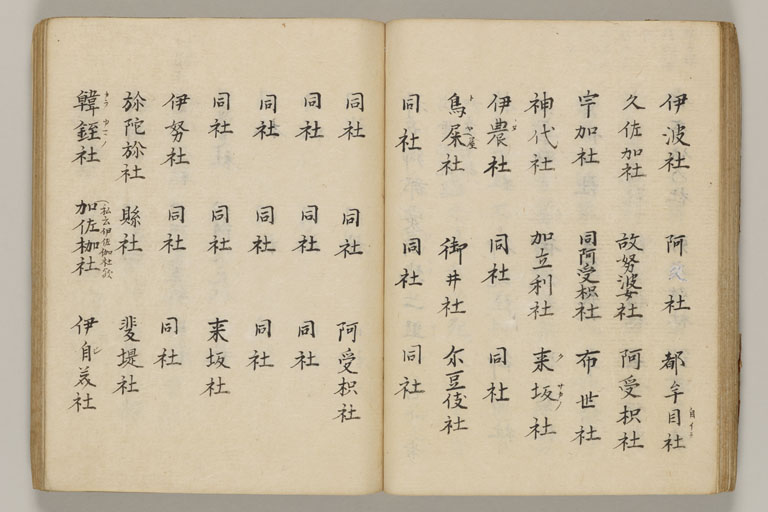 伊波社 阿 社 都牟目社
久佐加社 故努婆社 阿受枳社
宇加社 同阿受枳社 布世社
神代社 加立利社 来坂社
伊農社 同社 同社
鳥屎社 御井社 尓豆伎社
同社 同社 同社
同社 同社 阿受枳社
同社 同社 同社
同社 同社 同社
同社 同社 来坂社
伊努社 同社 同社
旀陀旀社 縣社 斐堤社
私云伊佐伽社歟
韓銍社 加佐枷社 伊自美社